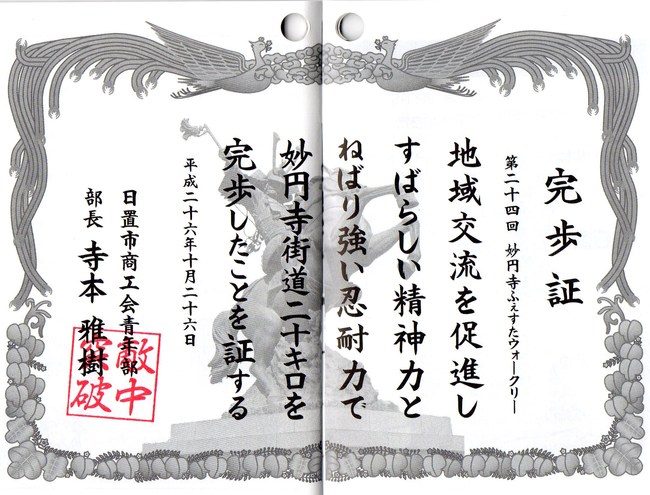 完歩証
第二十四回 妙円寺ふぇすたウォークリー
地域交流を促進し
すばらしい精神力と
ねばり強い忍耐力で
妙円寺街道二十キロを
完歩したことを証する
平成二十六年十月二十六日
日置市商工会青年部
部長 寺本 雅樹
敵中
突破